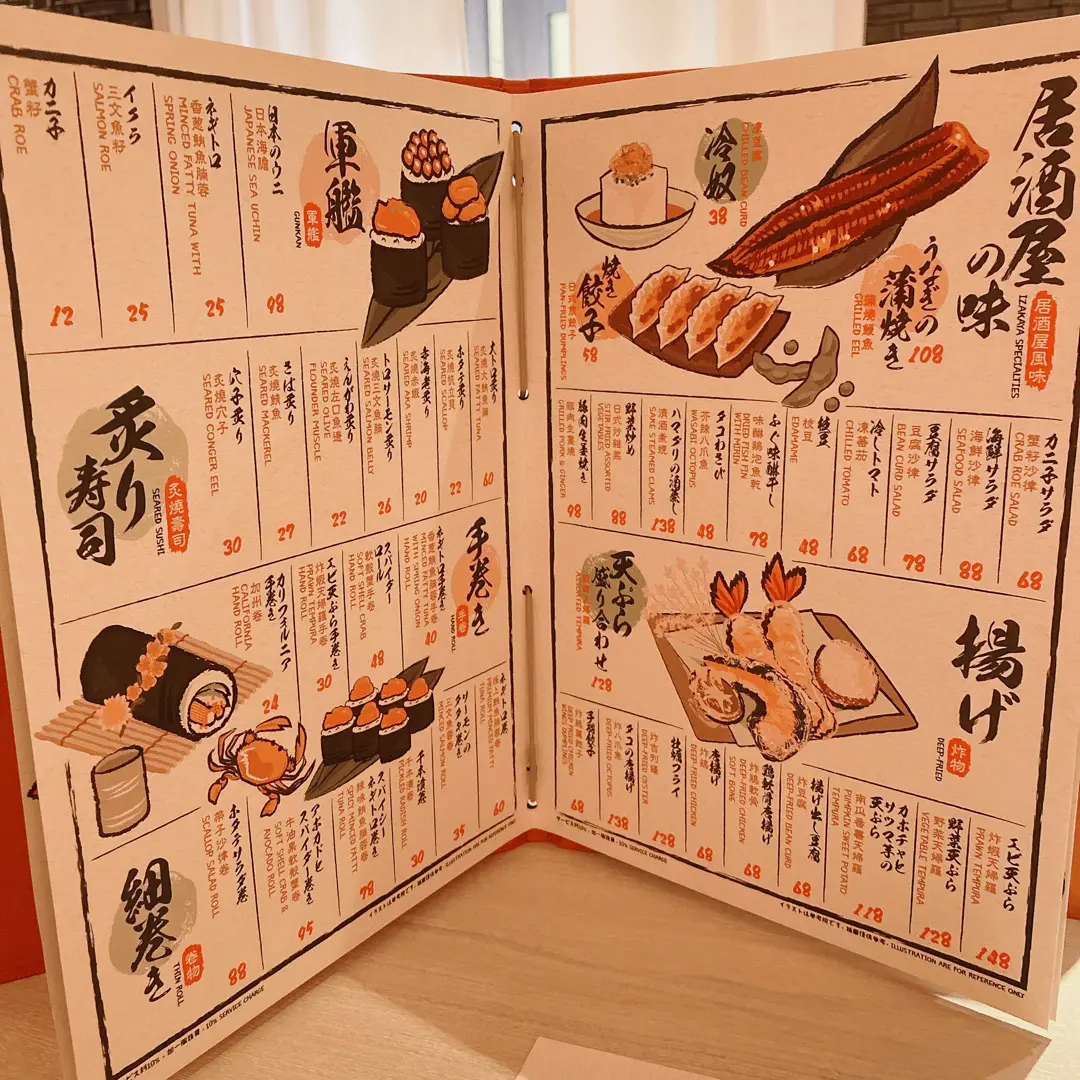 軍艦
軍艦
GUNKAN
日本のウニ
日本海膽
JAPANESE SEA UCHIN
98
ネギトロ
香葱鮪魚腩蓉
MINCED FATTY TUNA WITH
SPRING ONION
25
イクラ
三文魚籽
SALMON ROE
25
カニ子
蟹籽
CRAB ROE
12
炙り
寿司
炙燒壽司
SEARED SUSHI
大トロ炙り
SEARED FATTY TUNA
60
ホタテ炙り
SEARED SCALLOP
22
赤海老炙り
炙燒赤蝦
SEARED AKA SHRIMP
20
トロサーモン炙り
炙燒三文魚腩
SEARED SALMON BELLY
26
えんがわ炙り
炙燒左口魚邊
SEARED OLIVE
FLOUNDER MUSCLE
22
さば炙り
炙燒鯖魚
SEARED MACKEREL
27
穴子炙り
炙燒穴子
SEARED CONGER EEL
30
手巻き
手卷
HAND ROLL
ネギトロ手巻き
香葱鮪魚腩蓉手卷
MINCED FATTY TUNA
WITH SPRING ONION
HAND ROLL
40
スパイダー
ロール
軟殼蟹手卷
SOFT SHELL CRAB
HAND ROLL
48
エビ天ぷら手巻き
炸蝦天婦羅手卷
PRAWN TEMPURA
HAND ROLL
30
カリフォルニア
手巻き
加州卷
CALIFORNIA
HAND ROLL
24
細巻き
卷物
THIN ROLL
ネギトロ巻
TUNA ROLL
60
サーモンの
タタキ巻き
三文魚蓉卷
MINCED SALMON ROLL
35
千本漬巻
千本漬卷
PICKED RADISH ROLL
30
スパイシー
ネギトロ巻き
辣味鮪魚腩蓉卷
SPICY MINCED FATTY
TUNA ROLL
78
アボカドと
スパイダー巻き
牛油果軟殼蟹卷
SOFT SHELL CRAB &
AVOCADO ROLL
95
ホタテサラダ巻
帶子沙律卷
SCALLOP SALAD ROLL
88
サービス料10%・加一服務費・10% SERVICE CHARGE
イラストは参考用です・插圖僅供參考・ILLUSTRATION ARE FOR REFERENCE ONLY
居酒屋
の味
居酒屋風味
IZAKAYA SPECIALTIES
うなぎの
蒲焼き
蒲燒鰻魚
GRILLED EEL
108
冷奴
凍豆腐
CHILLED BEAN CURD
38
焼き
餃子
日式煎餃子
PAN-FRIED DUMPLINGS
58
カニ子サラダ
蟹籽沙律
CRAB ROE SALAD
68
海鮮サラダ
海鮮沙律
SEAFOOD SALAD
88
豆腐サラダ
豆腐沙律
BEAN CURD SALAD
78
冷しトマト
凍蕃茄
CHILLED TOMATO
68
枝豆
枝豆
EDAMAME
48
ふぐ味醂干し
味醂雞泡魚乾
DRIED FISH FIN
WITH MIRIN
78
タコわさび
芥辣八爪魚
WASABI OCTOPUS
48
ハマグリの酒蒸し
清酒煮蜆
SAKE STEAMED CLAMS
138
野菜炒め
日式炒雜菜
STIR-FRIED ASSORTED
VEGETABLES
88
豚肉生姜焼き
豚肉生薑燒
GRILLED PORK & GINGER
98
揚げ
炸物
DEEP-FRIED
天ぷら
盛り合わせ
ASSORTED TEMPURA
128
エビ天ぷら
炸蝦天婦羅
PRAWN TEMPURA
148
野菜天ぷら
野菜天婦羅
VEGETABLE TEMPURA
128
カボチャと
サツマ芋の
天ぷら
南瓜番薯天婦羅
PUMPKIN SWEET POTATO
TEMPURA
118
揚げ出し豆腐
炸豆腐
DEEP-FRIED BEAN CURD
68
鶏軟骨唐揚げ
炸雞軟骨
DEEP-FRIED CHICKEN
SOFT BONE
68
唐揚げ
炸雞
DEEP-FRIED CHICKEN
68
牡蠣フライ
炸吉列蠔
DEEP-FRIED OYSTER
128
タコの唐揚げ
炸八爪魚
DEEP-FRIED OCTOPUS
138
手羽餃子
炸雞翼餃子
DEEP FRIED CHICKEN
WINGS DUMPLINGS
68
サービス料10%・加一服務費・10% SERVICE CHARGE
イラストは参考用です・插圖僅供參考・ILLUSTRATION ARE FOR REFERENCE ONLY